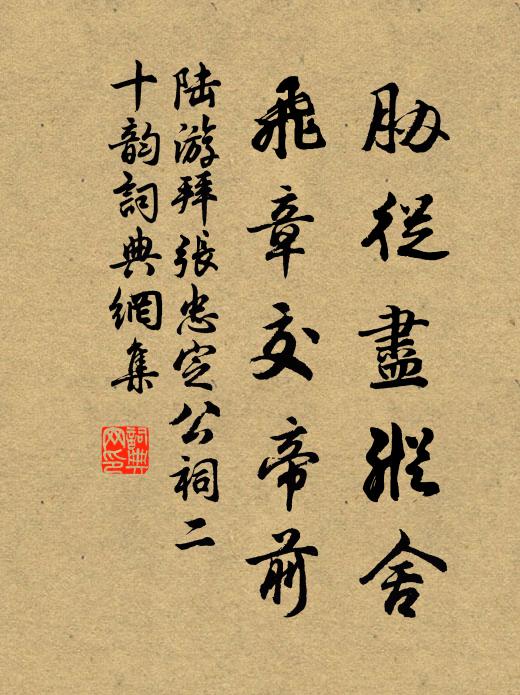 胁從盡縱舍
飛章交帝前
陆游拜張忠定公祠二
十韵詞典網集
詞典
网印